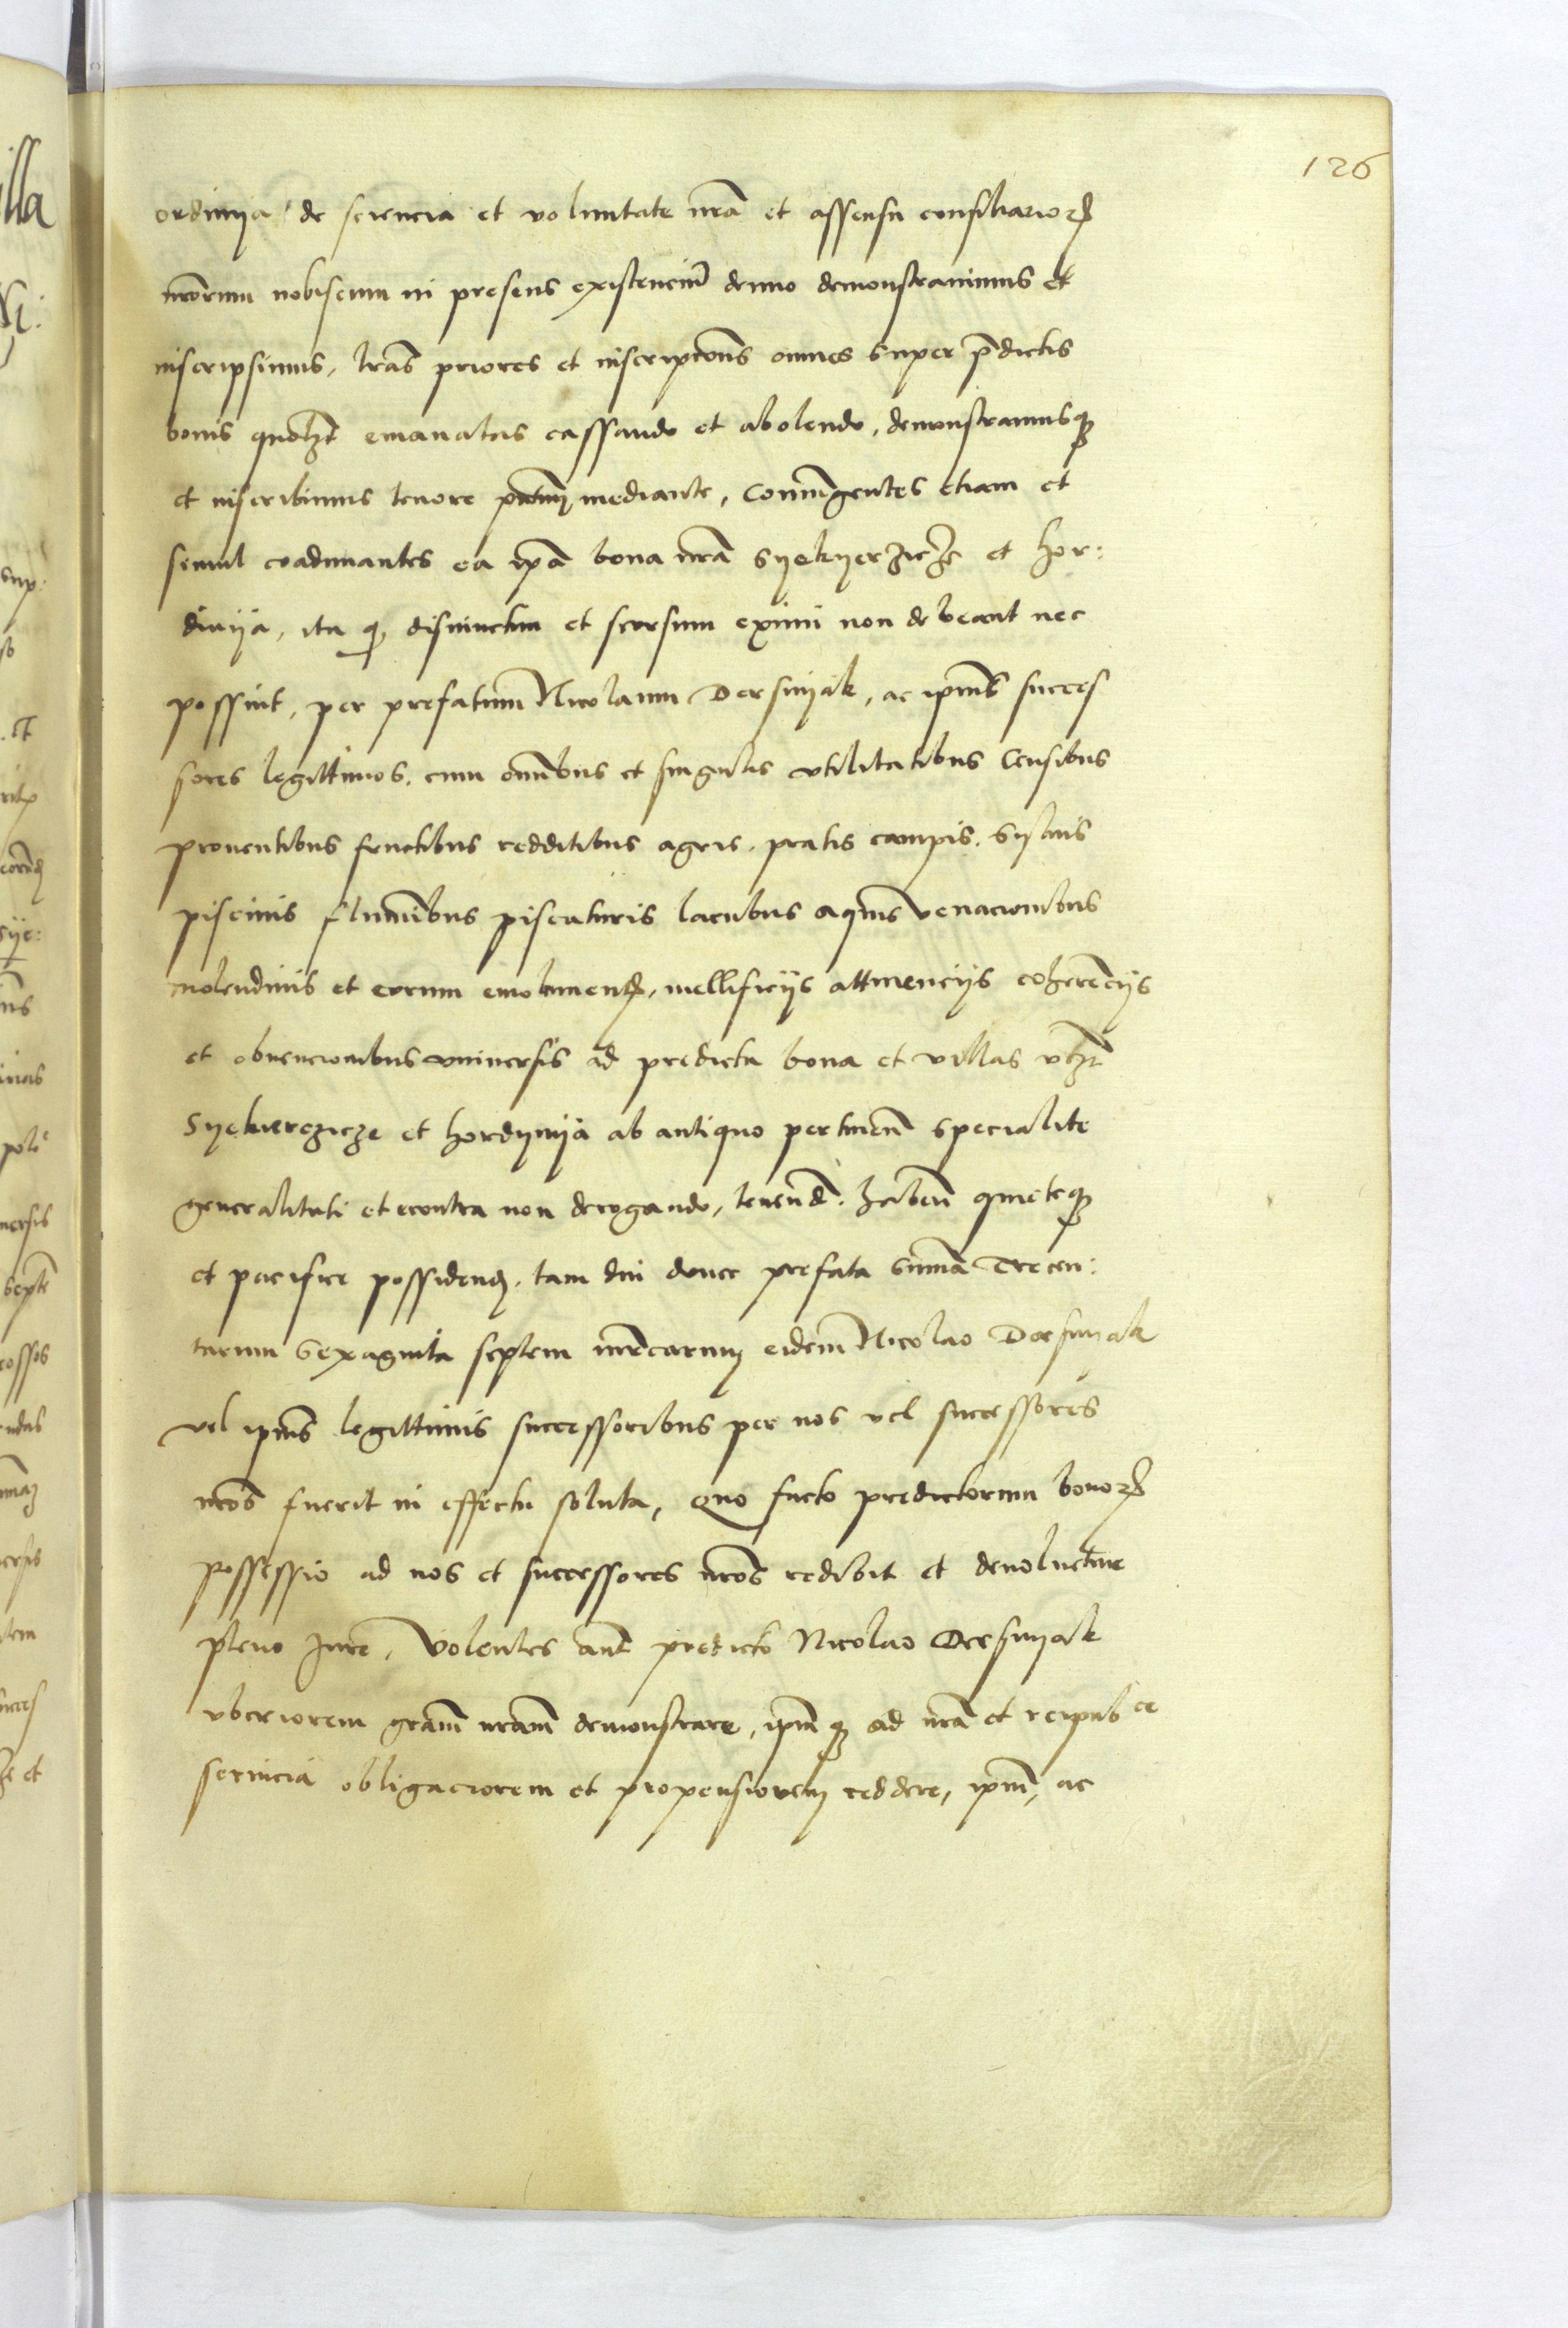 126
ordinija de sciencia et voluntate nrā et assensu consiliarioꝝ
nrōrum nobiscum in presens existenciu̅ denuo demonstrauimus et
inscripsimus, lrās priores et inscripcōns omnes super p̄dictis
bonis quolzt emanatas cassando et abolendo, demonstramusqꝫ
et inscribimus tenore pn̄tiuꝫ mediante, Coniu̅gentes etiam et
simul coadunantes ea ip̄a bona nrā Syekyerzicze et Hor:
dinija, ita ꝙ disiunctim et seorsum eximi non debeant nec
possint, per prefatum Nicolaum Dersnijak, ac ip̄ius succes
sores legittimos, cum om̄ibus et singulis vtilitatibus Censibus
prouentibus fructibus redditibus agris, pratis campis, Syluis
piscinis flumi̅bus piscaturis lacubus aquis venacionibus
molendinis et eorum emolumenꝭ, mellificijs attinencijs cohere̅cijs
et obuencionibus vniuersis ad predicta bona et villas vꝫt
Syekierzicze et Hordynija ab antiquo pertinen̄ specialite
generalitati et econtra non derogando, tenend̄. haben̄ quieteqꝫ
et pacifice possidenꝭ, tam diu donec prefata Sum̄a Trecen:
tarum Sexaginta septem mr̄carum eidem Nicolao Dersnijak
vel ip̄ius legittimis successoribus per nos vel successores
nrōs fuerit in effectu soluta, Quo facto predictorum bonoꝝ
possessio ad nos et successores nrōs redibit et deuoluetur
pleno Iure, Volentes aut̄ predicto Nicolao Dersnijak
vberiorem grām nrām demonstrare, ip̄m qꝫ ad nrā et reipub ce
seruicia obligaciorem et propensiorem reddere, ip̄m, ac